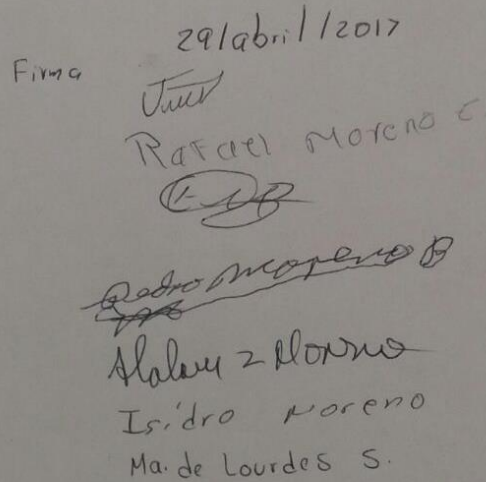 29/abril/2017
Firma
Rafael Moreno C.
Pedro Moreno B
Moreno
Isidro Moreno
Ma. de Lourdes S.